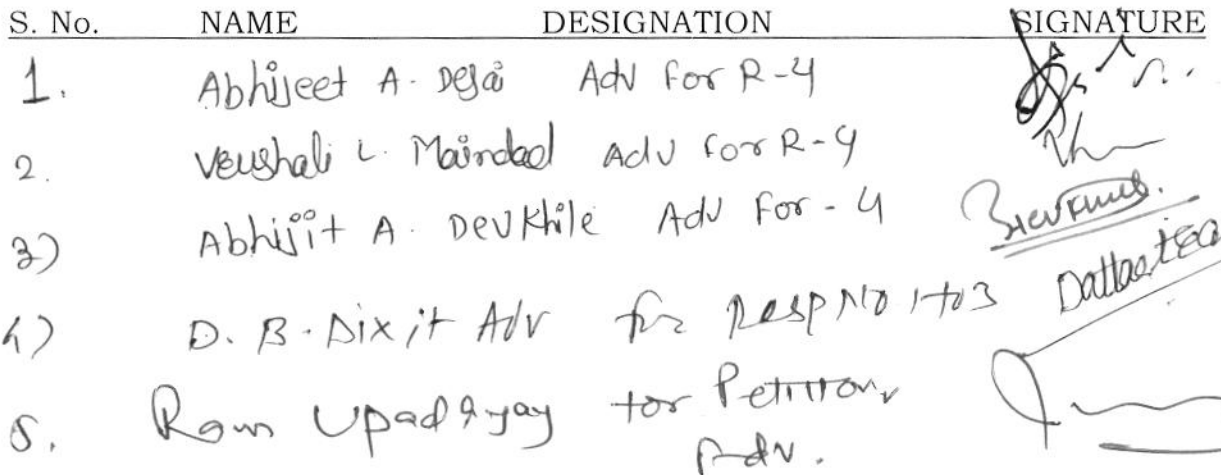 S. No. NAME DESIGNATION SIGNATURE
1. Abhijeet A. Desai Adv For R-4
2. L. Maindad Adv for R-4
3) Abhijit A. Devkhile Adv For - 4
4) D. B. Dixit Adv for Resp No 1 to 3
5. Ram Upadhyay for Petition
Adv.